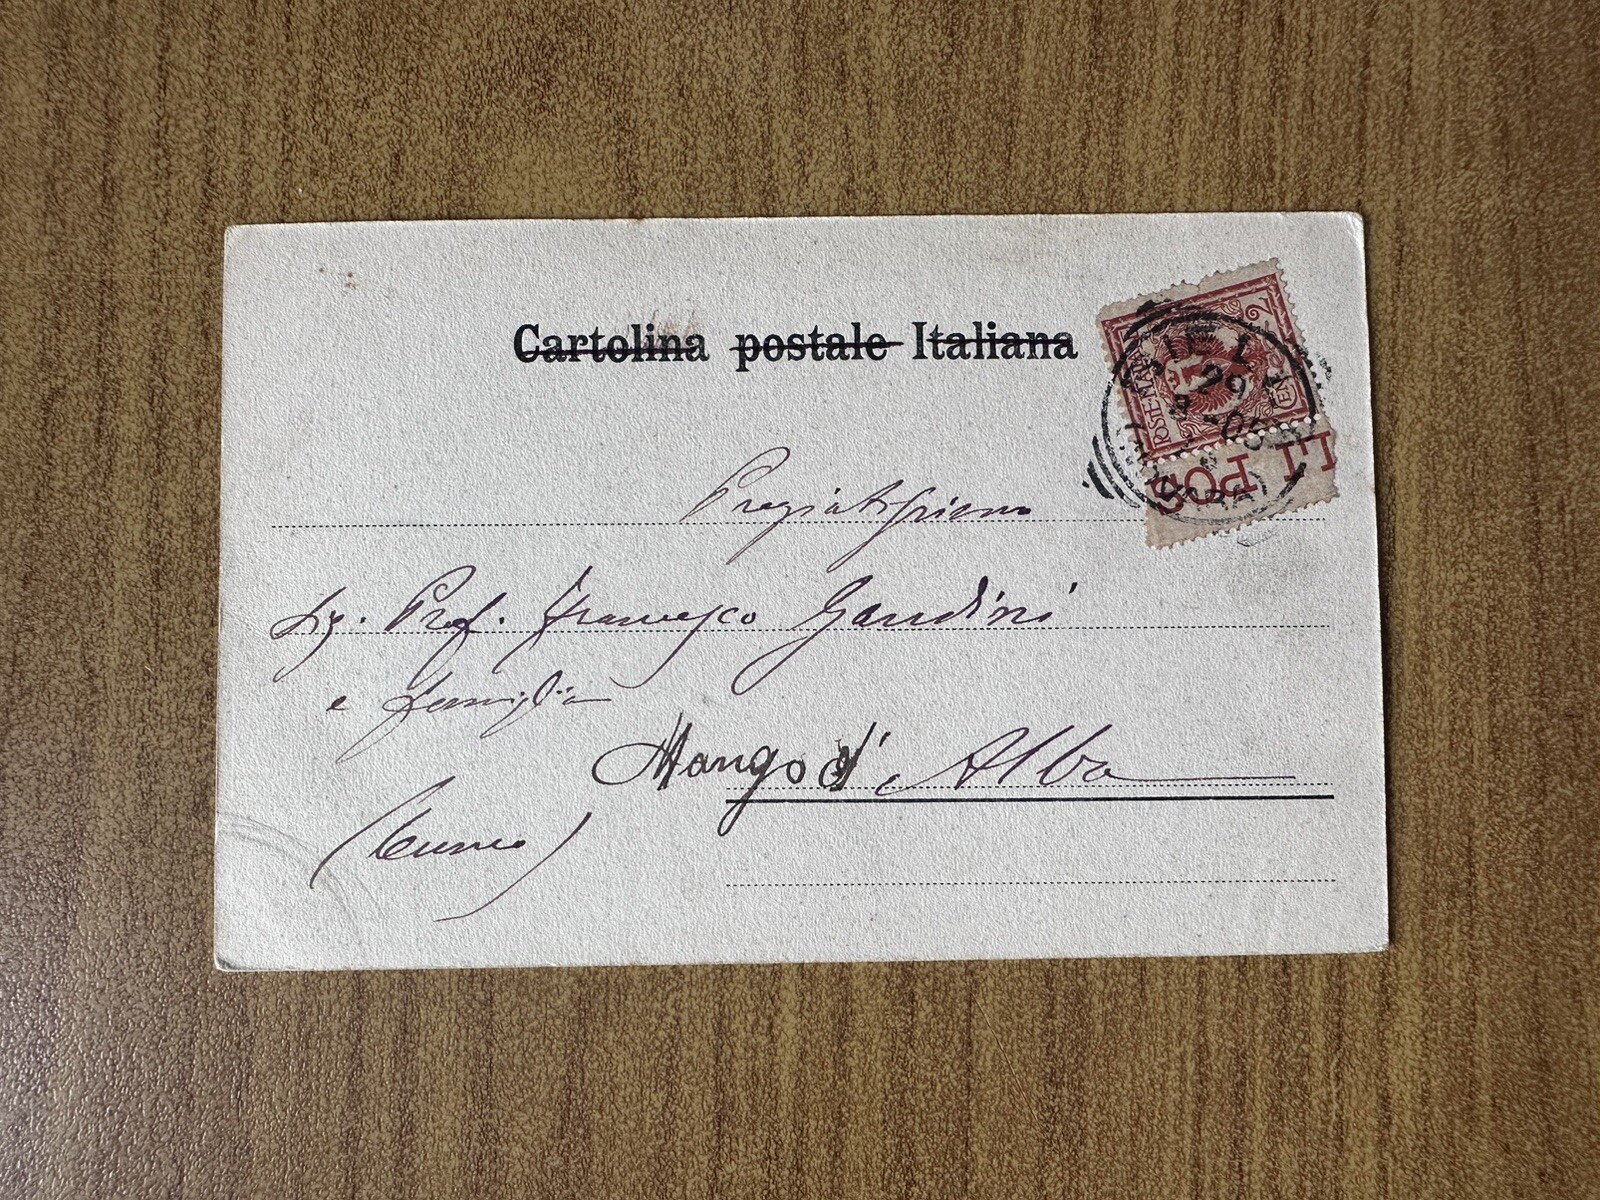 Cartolina postale Italiana
POSTE ITALIANE
CENT. 2
29
8 -05
LI POS
Pregiatissimo
Sig. Prof. Francesco Gandini
e famiglia
Mango d'Alba
(Cuneo)